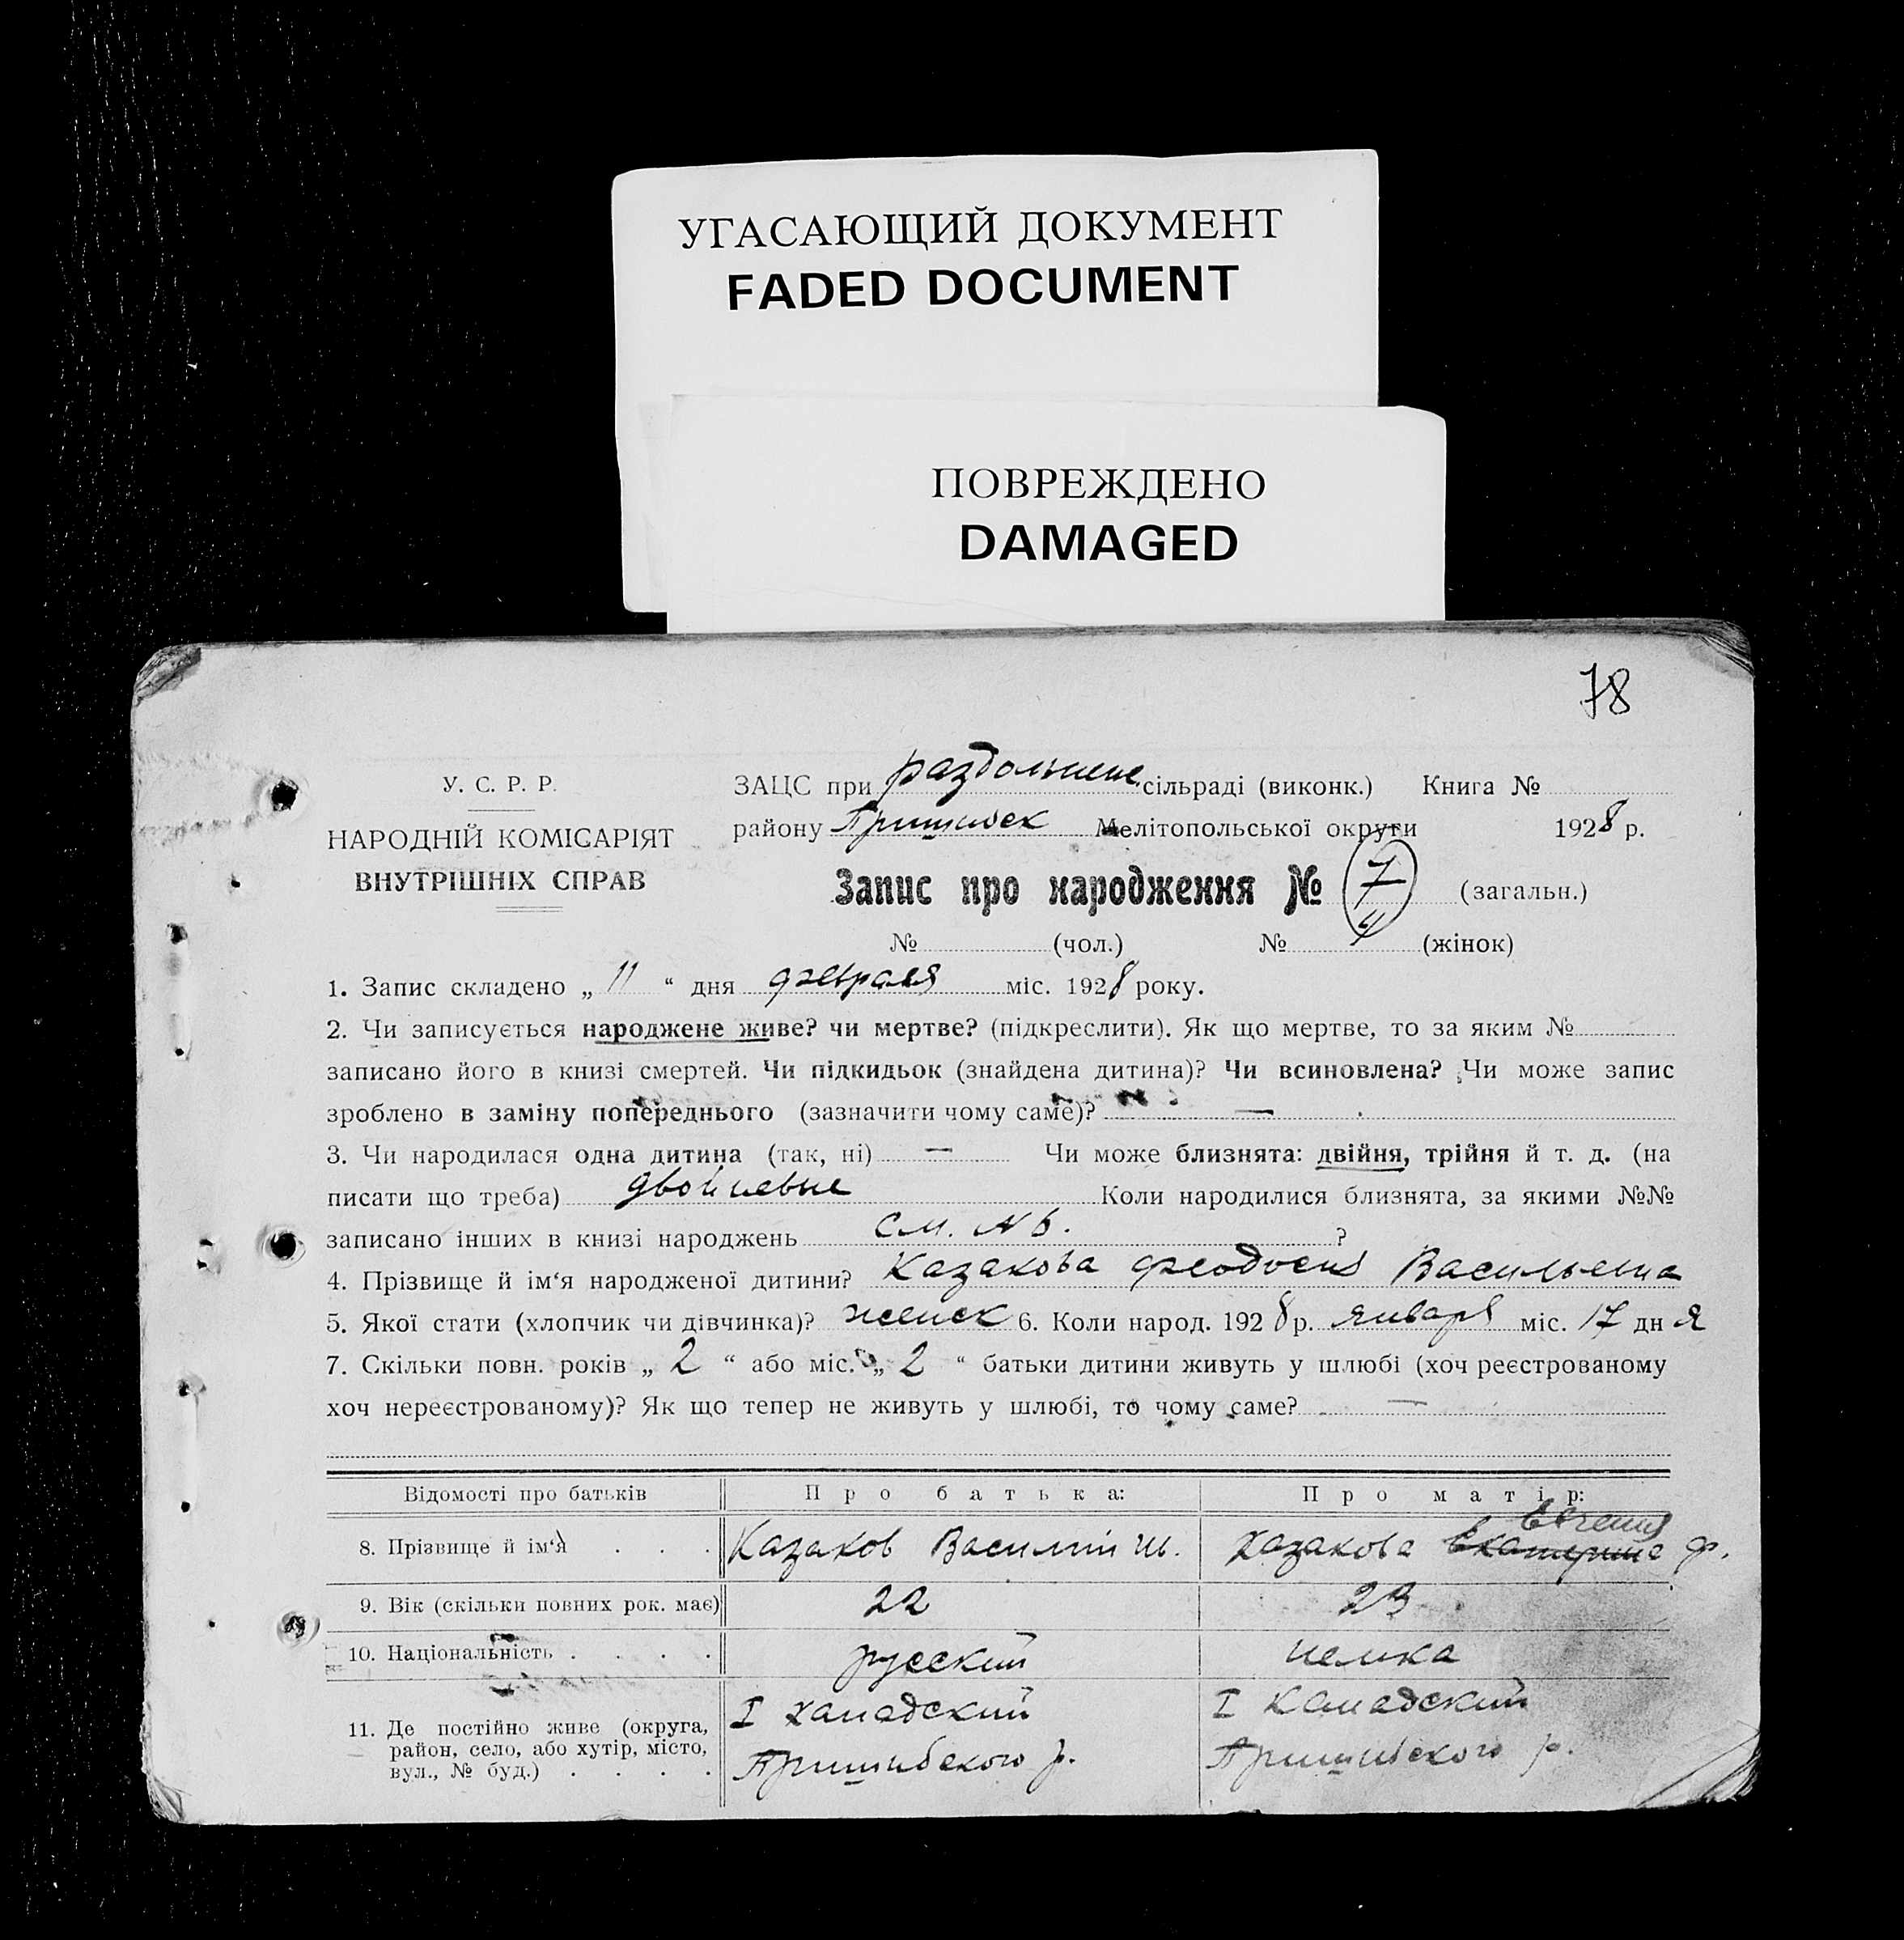 УГАСАЮЩИЙ ДОКУМЕНТ
FADED DOCUMENT
ПОВРЕЖДЕНО
DAMAGED
78
У. С. Р. Р.
НАРОДНІЙ КОМІСАРІЯТ
ВНУТРІШНІХ СПРАВ
ЗАЦС при раздольнене сільраді (виконк.) Книга №
району Пришибск Мелітопольської округи 1928 р.
Запис про народження № 7 (загальн.)
№ (чол.) № 4 (жінок)
1. Запис складено „ 11 “ дня февраля міс. 1928 року.
2. Чи записується народжене живе? чи мертве? (підкреслити). Як що мертве, то за яким №
записано його в книзі смертей. Чи підкидьок (знайдена дитина)? Чи всиновлена? Чи може запис
зроблено в заміну попереднього (зазначити чому саме)? —
3. Чи народилася одна дитина (так, ні) — Чи може близнята: двійня, трійня й т. д. (на
писати що треба) двойневые Коли народилися близнята, за якими №№
записано інших в книзі народжень см. № 6. ?
4. Прізвище й ім‘я народженої дитини? Казакова Феодосия Васильевна
5. Якої стати (хлопчик чи дівчинка)? женск 6. Коли народ. 1928 р. января міс. 17 дн я
7. Скільки повн. років „ 2 “ або міс. „ 2 “ батьки дитини живуть у шлюбі (хоч реєстрованому
хоч нереєстрованому)? Як що тепер не живуть у шлюбі, то чому саме? —
Відомості про батьків Про батька: Про матір:
Евгения
8. Прізвище й ім‘я . . . Казаков Василий И. Казакова Екатерина Ф.
9. Вік (скільки повних рок. має) 22 23
10. Національність . . . . русский немка
11. Де постійно живе (округа, район, село, або хутір, місто, вул., № буд.) . . . .
I Канадский I Канадский
Пришибского р. Пришибского р.